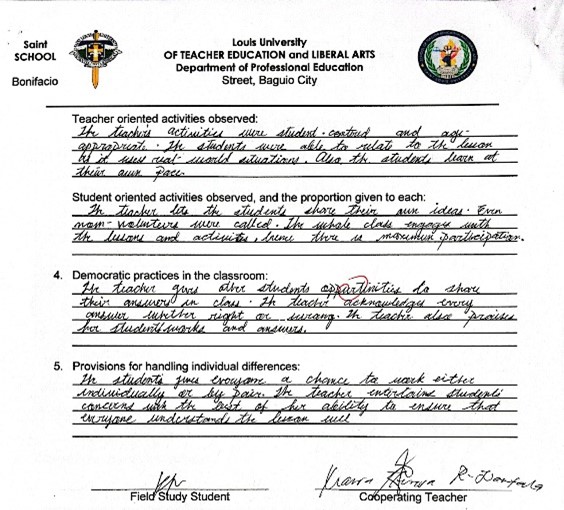 Saint Louis University
SCHOOL OF TEACHER EDUCATION and LIBERAL ARTS
Department of Professional Education
Bonifacio Street, Baguio City
Teacher oriented activities observed:
The teacher's activities were student-centered and age-
appropriate. The students were able to relate to the lesson
as it uses real-world situations. Also the students learn at
their own pace.
Student oriented activities observed, and the proportion given to each:
The teacher lets the students share their own ideas. Even
non-volunteers were called. The whole class engages with
the lessons and activities, hence there is maximum participation.
4. Democratic practices in the classroom:
The teacher gives other students opportunities to share
their answers in class. The teacher acknowledges every
answer whether right or wrong. The teacher also praises
her students works and answers.
5. Provisions for handling individual differences:
The students gives everyone a chance to work either
individually or by pair. The teacher entertains students
concerns with the best of her ability to ensure that
everyone understands the lesson well
Field Study Student
Cooperating Teacher